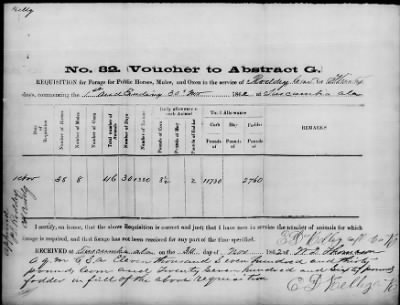 Kelly
No. 32. Voucher to Abstract G.
REQUISITION for Forage for Public Horses, Mules, and Oxen in the service of Roddey's Cav. for Thirty
days, commencing the 1st and Ending 30th Nov 1862 at Tuscumbia Ala
Date of Requisition
Number of Horses
Number of Mules
Number of Oxen
Total number of Animals
Number of Days
Number of Rations
Daily allowance to each Animal
Pounds of Corn
Pounds of Hay
Pounds of Fodder
Total Allowance
Corn Hay Fodder
Pounds of Pounds of Pounds of
REMARKS
Nov 38 8 46 30 1380 2 11730 2760
I certify, on honor, that the above Requisition is correct and just; that I have now in service the number of animals for which
forage is required, and that forage has not been received for any part of the time specified.
RECEIVED at Tuscumbia Ala on the day of Nov 1862 of
A Q M C.S.A Eleven thousand Seven hundred and thirty
pounds corn and Twenty Seven hundred and Sixty pounds
fodder in full of the above requisition